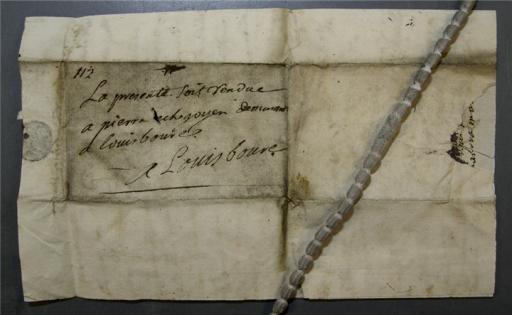 112
La presente soit rendue
a pierre echegoyen
a louisbourg
a Louisbourg